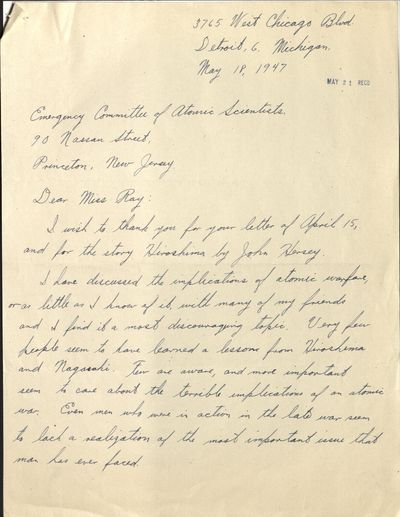 3765 West Chicago Blvd.
Detroit, 6, Michigan.
May 18, 1947
MAY 21 RECD
Emergency Committee of Atomic Scientists.
90 Nassau Street,
Princeton, New Jersey
Dear Miss Ray:
I wish to thank you for your letter of April 15,
and for the story Hiroshima by John Hersey.
I have discussed the implications of atomic warfare,
or as little as I know of it, with many of my friends
and I find it a most discouraging topic. Very few
people seem to have learned a lesson from Hiroshima
and Nagasaki. Few are aware, and more important
seem to care about the terrible implications of an atomic
war. Even men who were in action in the late war seem
to lack a realization of the most important issue that
man has ever faced.